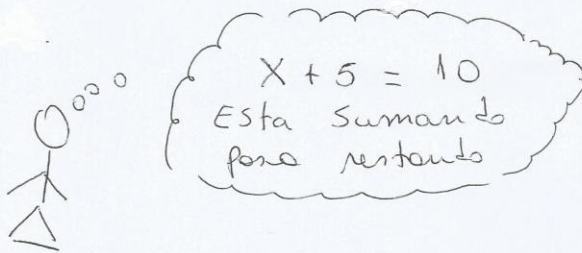 X + 5 = 10
Esta sumando
pasa restando